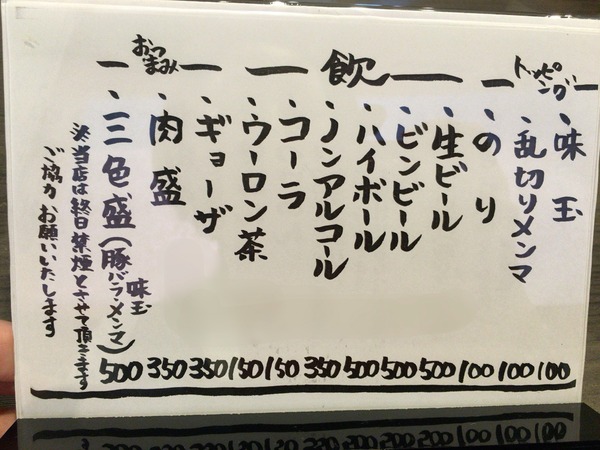 トッピング
・味玉 100
・乱切りメンマ 100
・のり 100
飲
・生ビール 500
・ビンビール 500
・ハイボール 500
・ノンアルコール 350
・コーラ 150
・ウーロン茶 150
おつまみ
・ギョーザ 350
・肉盛 350
・三色盛(豚バラ・メンマ 味玉) 500
※当店は終日禁煙とさせて頂きます
ご協力お願いいたします